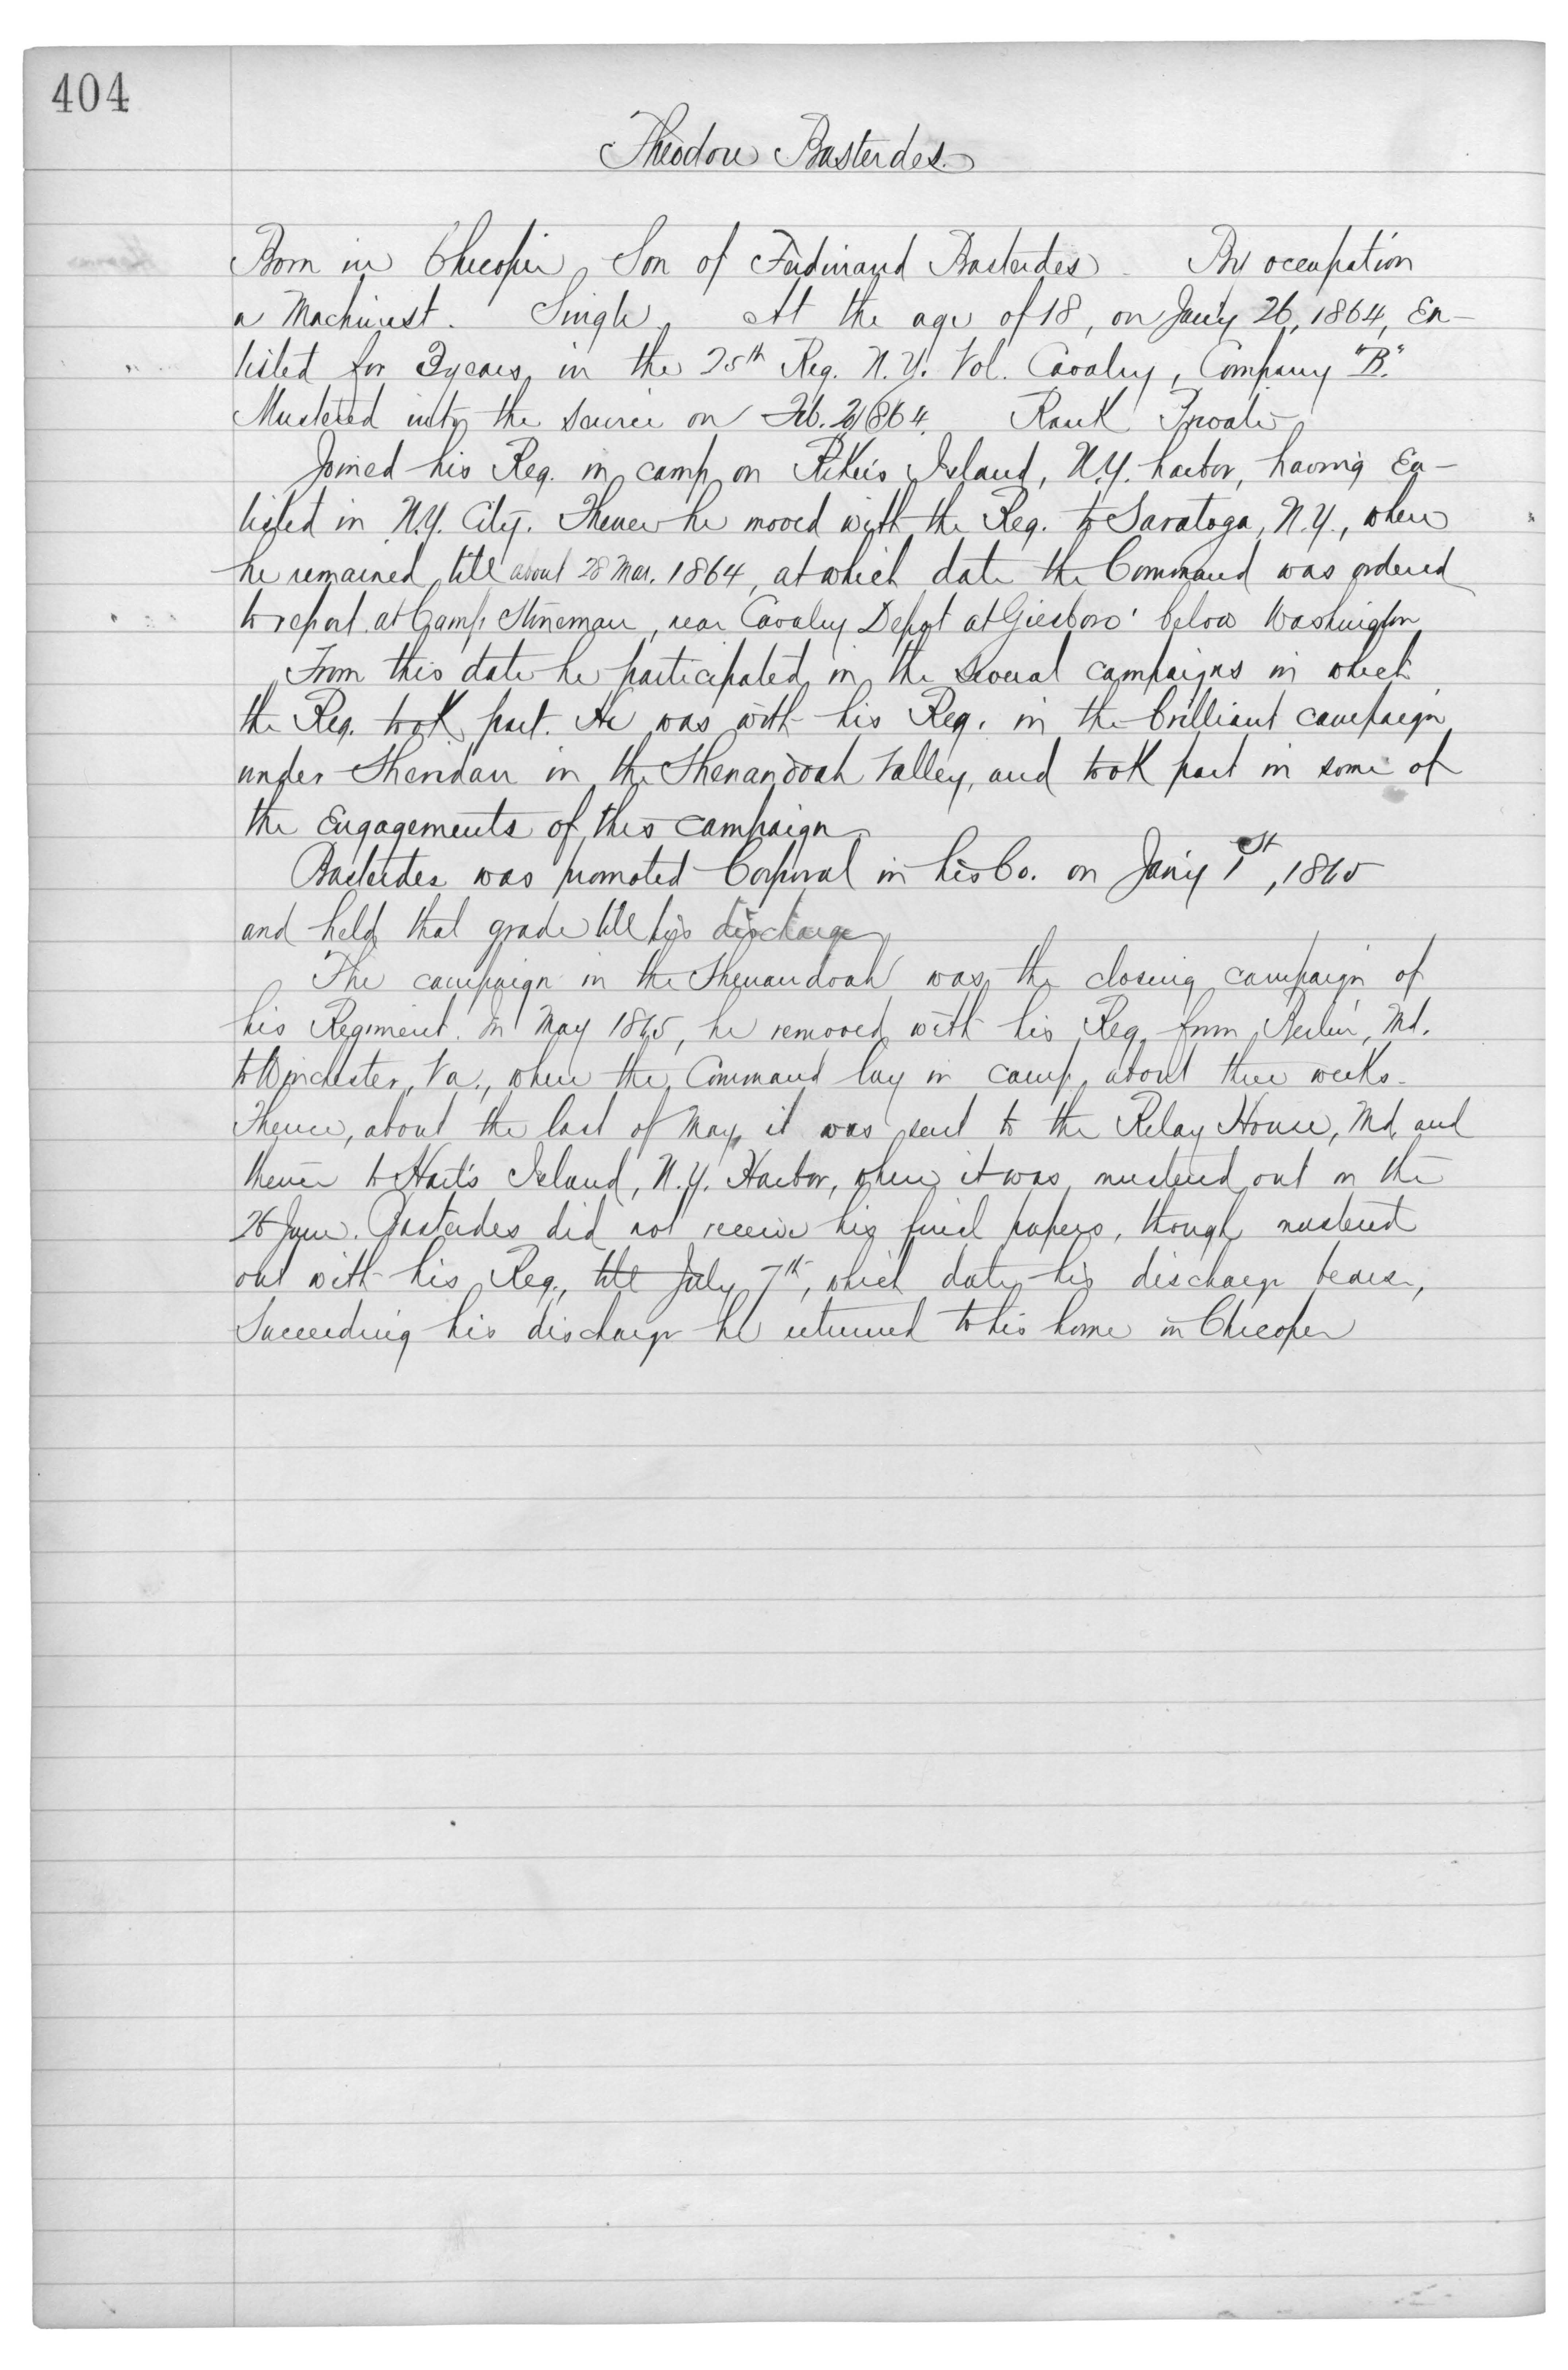 404
Theodore Basterdes.
Born in Chicopee, Son of Ferdinand Basterdes. By occupation
a Machinist. Single. At the age of 18, on Jan'y 26, 1864, En-
listed for 3 years, in the 25th Reg. N.Y. Vol. Cavalry, Company "B."
Mustered into the service on Feb. 2, 1864. Rank Private.
Joined his Reg. in camp on Riker's Island, N.Y. harbor, having En-
listed in N.Y. City. Thence he moved with the Reg. to Saratoga, N.Y., where
he remained till about 28 Mar. 1864, at which date the Command was ordered
to report at Camp Stoneman, near Cavalry Depot at Giesboro' below Washington.
From this date he participated in the several campaigns in which
the Reg. took part. He was with his Reg. in the brilliant campaign
under Sheridan in the Shenandoah Valley, and took part in some of
the Engagements of this campaign.
Basterdes was promoted Corporal in his Co. on Jan'y 1st, 1865
and held that grade till his discharge
The campaign in the Shenandoah was the closing campaign of
his Regiment. In May 1865, he removed with his Reg. from Berlin, Md.
to Winchester, Va., where the Command lay in camp about three weeks.
Thence, about the last of May, it was sent to the Relay House, Md, and
thence to Hart's Island, N.Y. Harbor, where it was mustered out on the
26 June. Basterdes did not receive his final papers, though mustered
out with his Reg., till July 7th, which date his discharge bears,
Succeeding his discharge he returned to his home in Chicopee